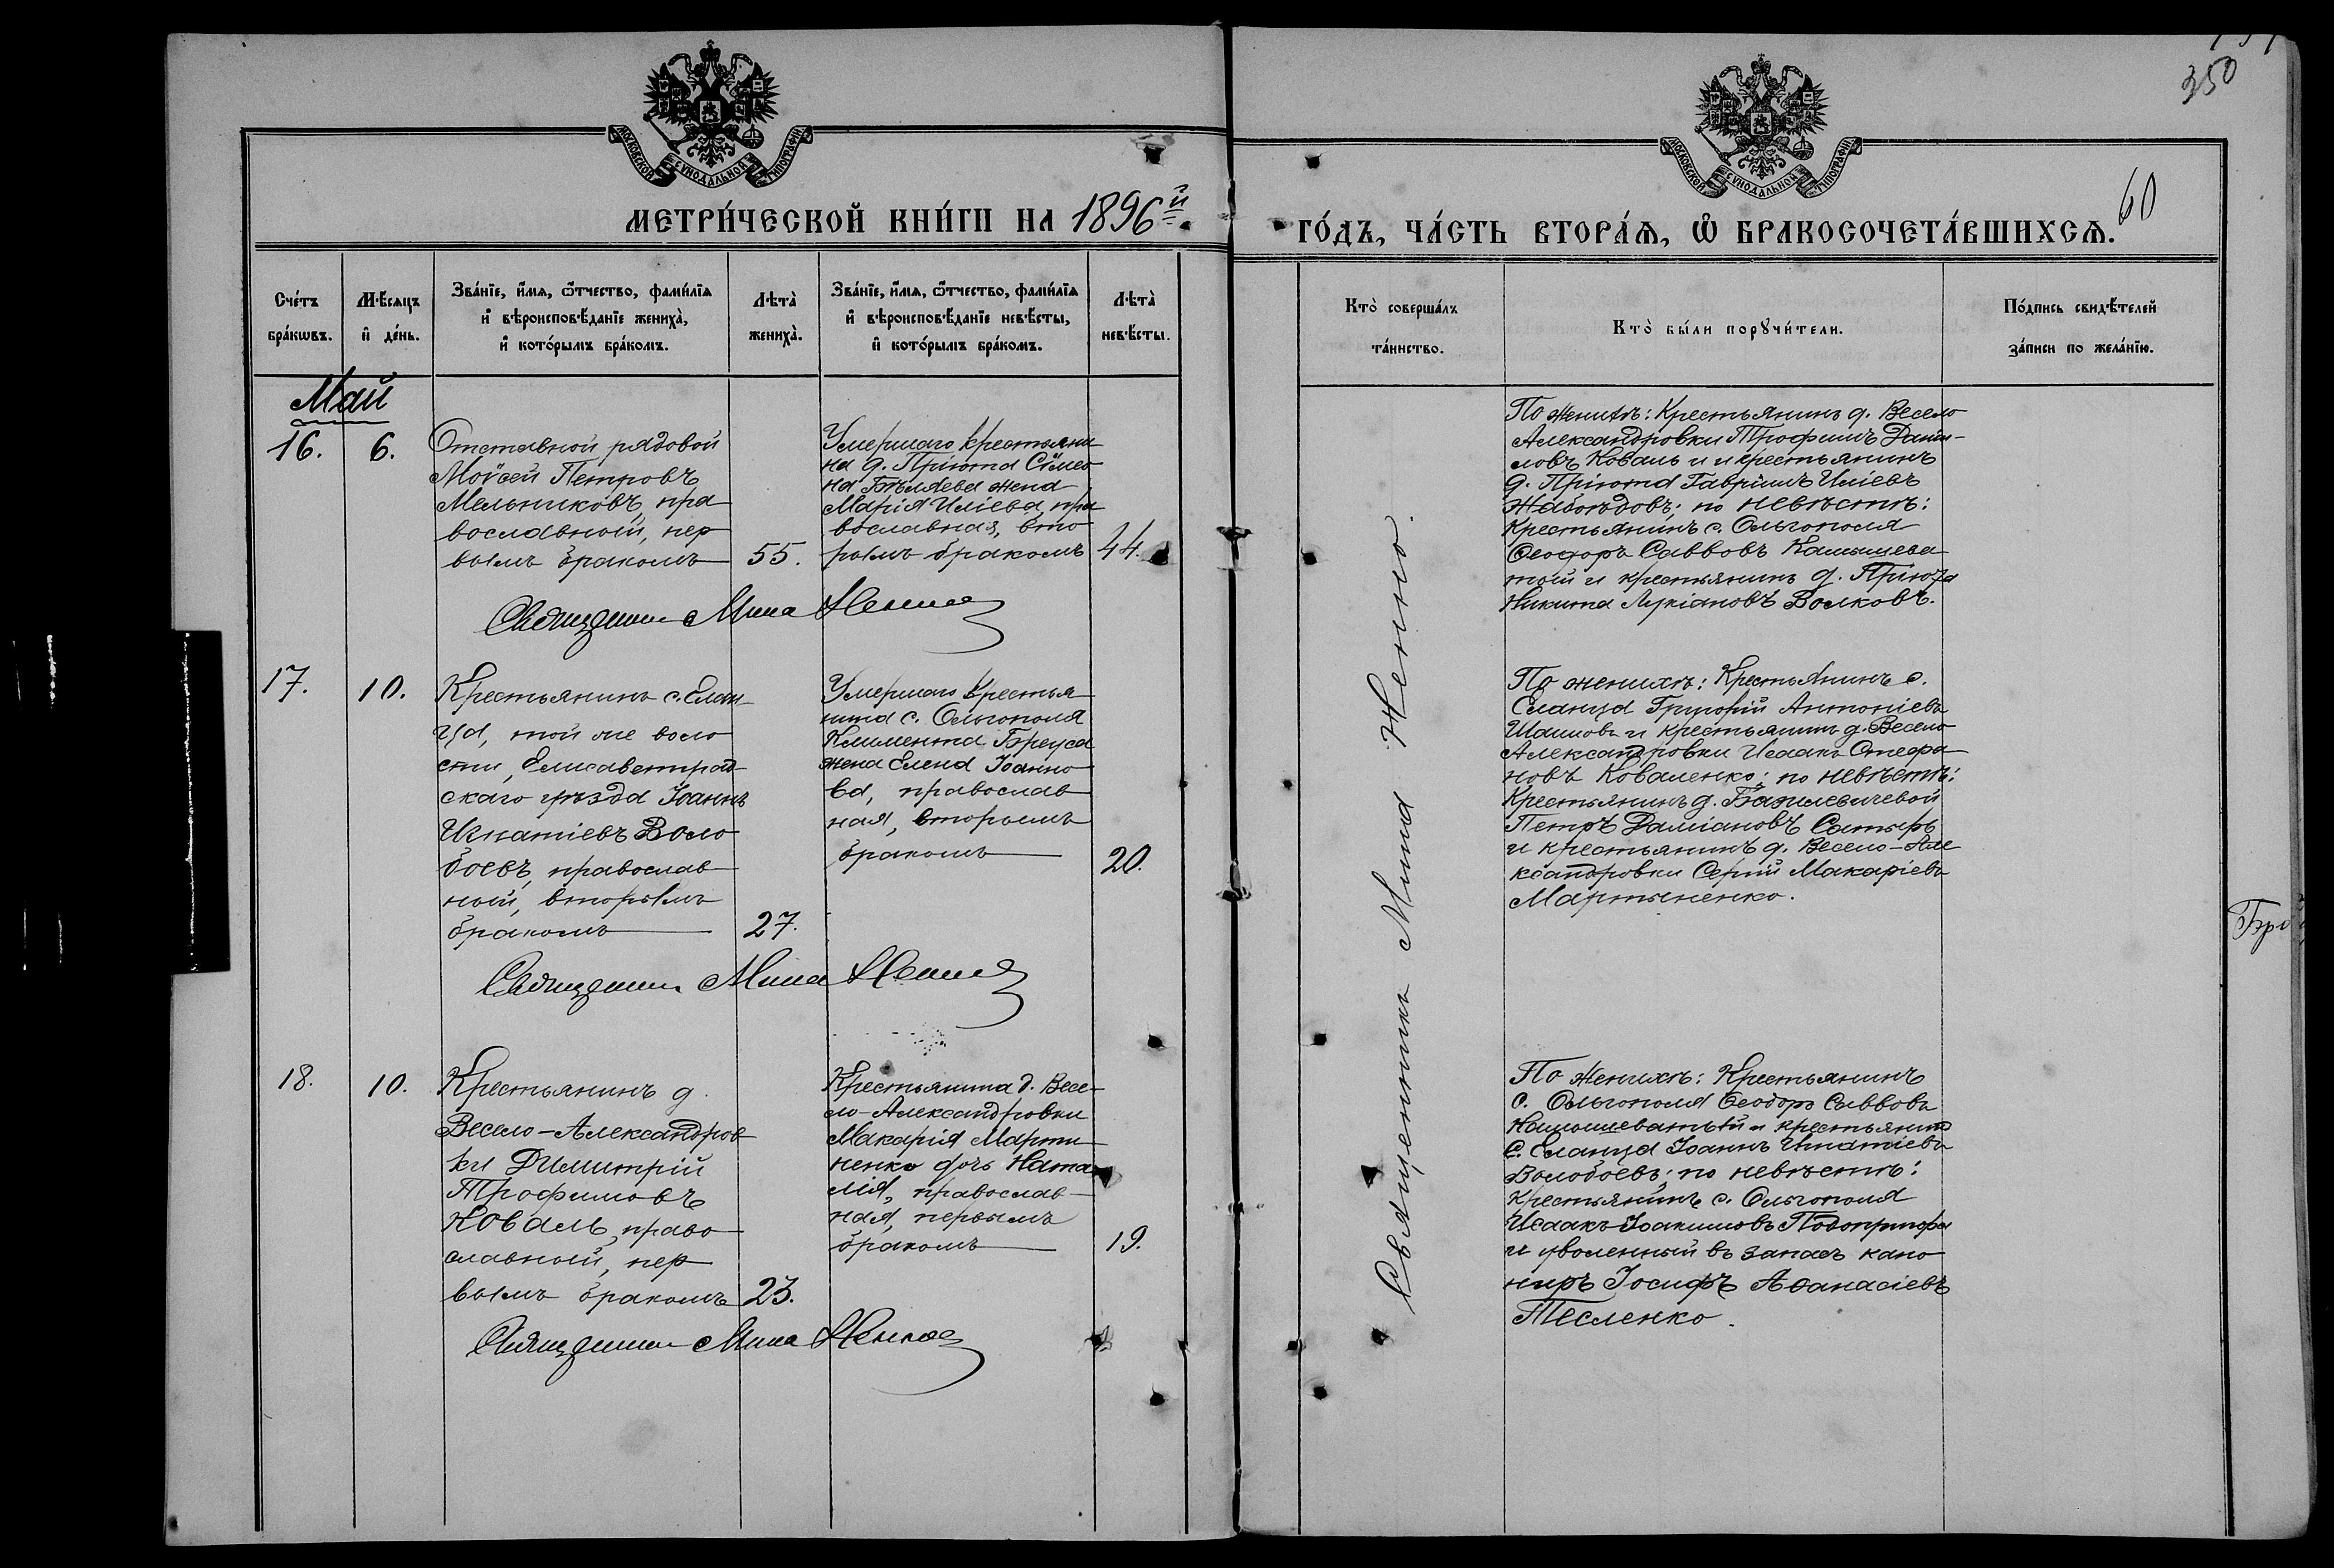 350
МОСКОВСКОЙ СѴНОДАЛЬНОЙ ТИПОГРАФІИ
МОСКОВСКОЙ СѴНОДАЛЬНОЙ ТИПОГРАФІИ
60
МЕТРИ́ЧЕСКОЙ КНИ́ГИ НА 1896й
ГО́ДЪ, ЧА́СТЬ ВТОРА́Я, Ѡ҆ БРАКОСОЧЕТА́ВШИХСѦ.
Сче́тъ
бра́кѡвъ.
Мѣ́сяцъ
и҆ де́нь.
Зва́нїе, и҆́мя, ѻ҆́тчество, фами́лїя
и҆ вѣроисповѣ́данїе жениха̀,
и҆ кото́рымъ бра́комъ.
Лѣта̀
жениха̀.
Зва́нїе, и҆́мя, ѻ҆́тчество, фами́лїя
и҆ вѣроисповѣ́данїе невѣ́сты,
и҆ кото́рымъ бра́комъ.
Лѣта̀
невѣ́сты.
Кто̀ соверша́лъ
та́инство.
Кто̀ бы́ли порꙋчи́тели.
По́дпись свидѣ́телей
за́писи по жела́нїю.
Май
16.
6.
Отставной рядовой
Моѵсей Петровъ
Мельниковъ, пра
вославный, пер
вымъ бракомъ
55.
Умершаго крестьяни
на д. Пріюта Сѵмео
на Бѣляева жена
Марія Иліева, пра
вославная, вто
рымъ бракомъ
44.
Священникъ Мина Ненно
По женихѣ: Крестьянинъ д. Весело
Александровки Трофимъ Даніи-
ловъ Коваль и крестьянинъ
д. Пріюта Гавріилъ Иліевъ
Жабоѣдовъ; по невѣстѣ:
Крестьянинъ с. Ольгополя
Ѳеодоръ Саввовъ Камышева
тый и крестьянинъ д. Пріюта
Никита Лукіановъ Волковъ.
17.
10.
Крестьянинъ с. Елан
ца, той же воло
сти, Елисаветград
скаго уѣзда Іоаннъ
Игнатіевъ Воло
боевъ, православ
ный, вторымъ
бракомъ
27.
Умершаго крестья
нина с. Ольгополя
Климента Бреуса
жена Елена Іоанно
ва, православ
ная, вторымъ
бракомъ
20.
Священникъ Мина Ненно
По женихѣ: Крестьянинъ с.
Еланца Григорій Антоніевъ
Шаимовъ и крестьянинъ д. Весело
Александровки Исаакъ Стефа
новъ Коваленко; по невѣстѣ:
Крестьянинъ д. Базилевичевой
Петръ Даміановъ Сатыръ
и крестьянинъ д. Весело-Але
ксандровки Сергій Макаріевъ
Мартыненко.
18.
10.
Крестьянинъ д.
Весело-Александров
ки Димитрій
Трофимовъ
Коваль, право
славный, пер
вымъ бракомъ
23.
Крестьянина д. Весе-
ло-Александровки
Макарія Марты
ненко дочь Ната
лія, православ-
ная, первымъ
бракомъ
19.
Священникъ Мина Ненно
По женихѣ: Крестьянинъ
с. Ольгополя Ѳеодоръ Саввовъ
Камышеватый и крестьянинъ
с. Еланца Іоаннъ Игнатіевъ
Волобоевъ; по невѣстѣ:
Крестьянинъ с. Ольгополя
Исаакъ Іоакимовъ Подопригора
и уволенный въ запасъ кано
ниръ Іосифъ Аѳанасіевъ
Тесленко.
Священникъ Мина Ненно.